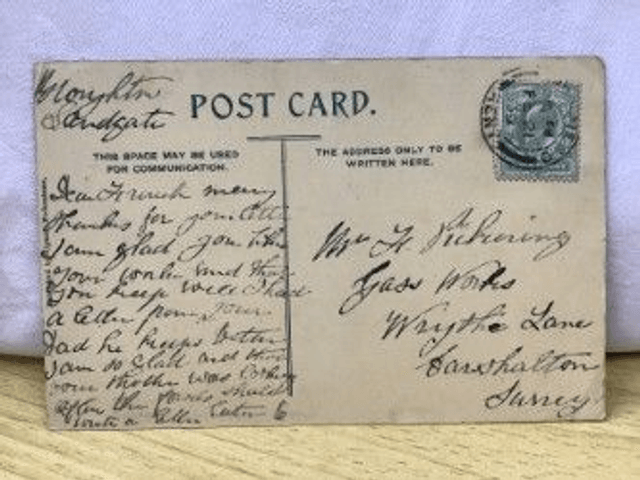 Sandgate
POST CARD.
THIS SPACE MAY BE USED
FOR COMMUNICATION.
THE ADDRESS ONLY TO BE
WRITTEN HERE.
many
thanks for your letter
I am glad you like
your work and that
you keep well I had
a letter from your
Dad he keeps better
I am so glad and that
your Mother was
after the
write a letter later
F. Pickering
Gass Works
Wrythe Lane
Carshalton
Surrey